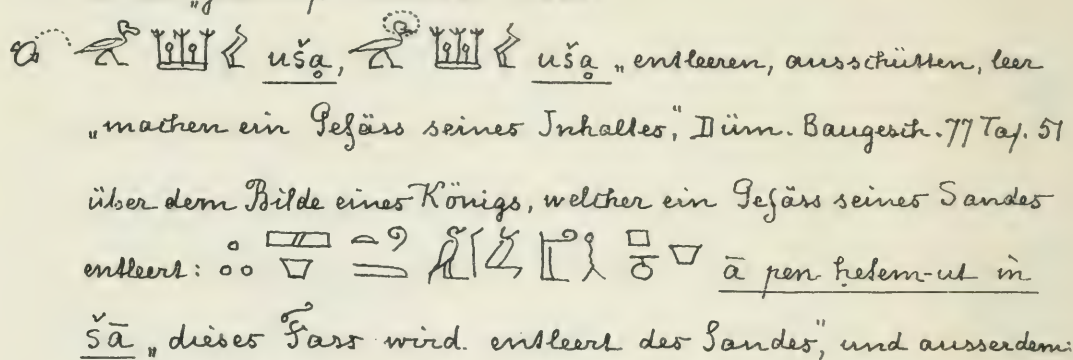 ušạ, ušạ „entleeren, ausschütten, leer
„machen ein Gefäss seines Inhaltes,“ Düm. Baugesch. 77 Taf. 51
über dem Bilde eines Königs, welcher ein Gefäss seines Sandes
entleert: ā pen ḥetem-ut in
šā „dieses Fass wird entleert des Sandes,“ und ausserdem: